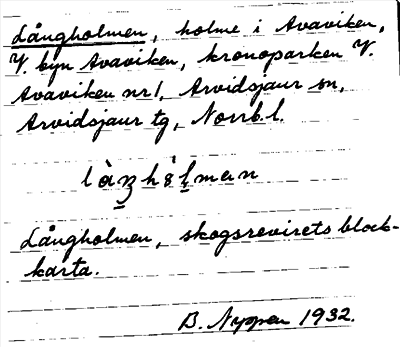 Långholmen, holme i Avaviken,
V. byn Avaviken, kronoparken V.
Avaviken nr 1, Arvidsjaur sn,
Arvidsjaur tg, Norrb. l.
Långholmen, skogsrevirets block-
karta.
B. Nyman 1932.